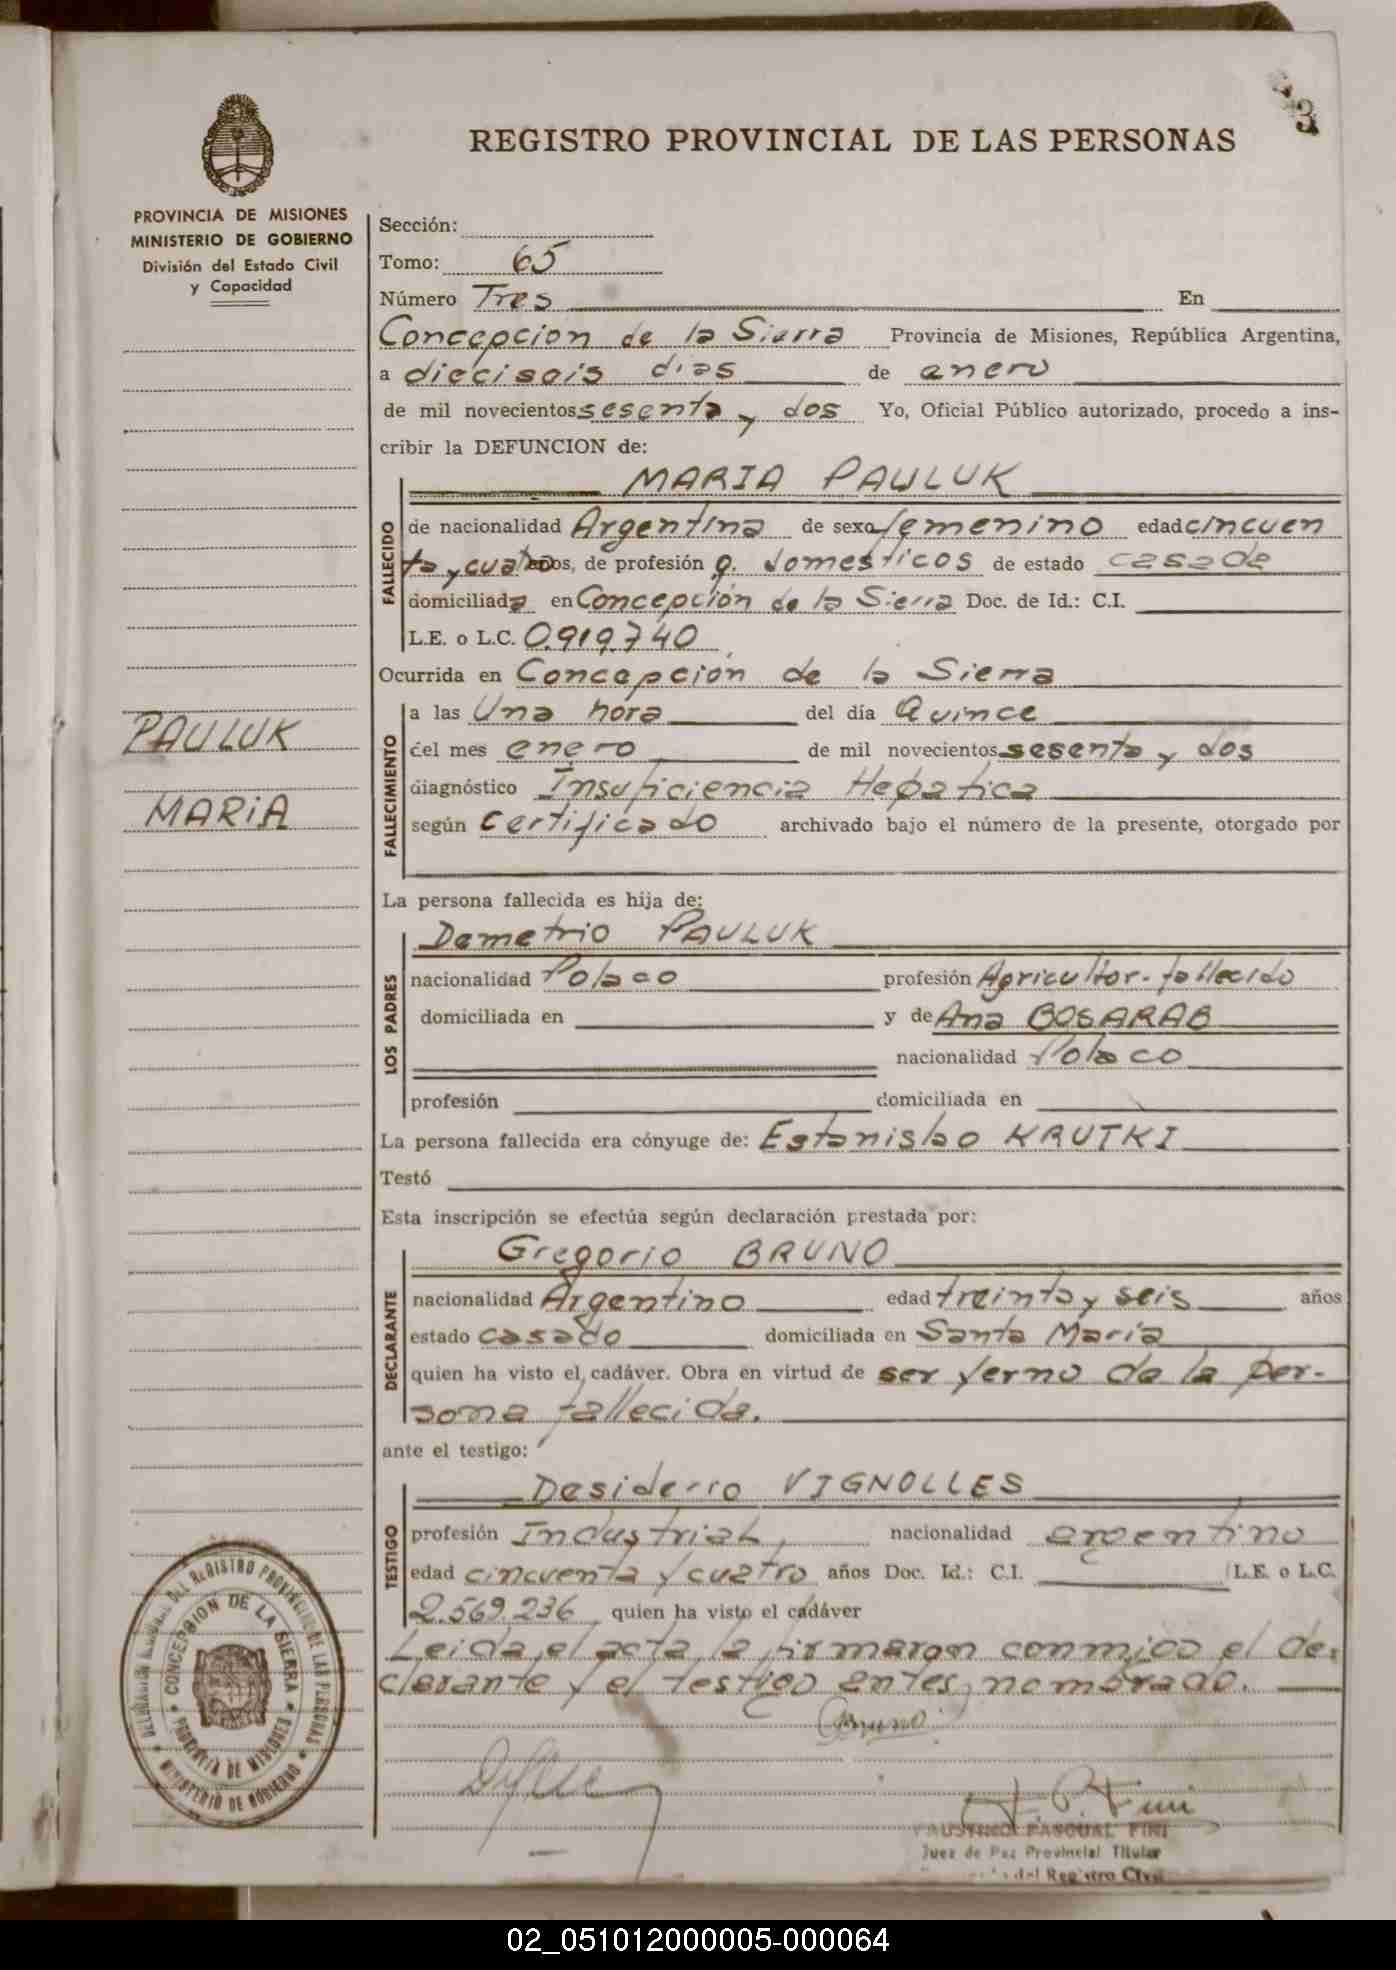 3
REGISTRO PROVINCIAL DE LAS PERSONAS
PROVINCIA DE MISIONES
MINISTERIO DE GOBIERNO
División del Estado Civil
y Capacidad
Sección:
Tomo: 65
Número Tres En
Concepcion de la Sierra Provincia de Misiones, República Argentina,
a dieciseis dias de enero
de mil novecientos sesenta y dos Yo, Oficial Público autorizado, procedo a ins-
cribir la DEFUNCION de:
MARIA PAULUK
FALLECIDO
de nacionalidad Argentina de sexo femenino edad cincuen
ta y cuatro años, de profesión q. domesticos de estado casada
domiciliada en Concepción de la Sierra Doc. de Id.: C.I.
L.E. o L.C. 0.919.740
Ocurrida en Concepción de la Sierra
FALLECIMIENTO
a las Una hora del día Quince
del mes enero de mil novecientos sesenta y dos
diagnóstico Insuficiencia Hepatica
según Certificado archivado bajo el número de la presente, otorgado por
PAULUK
MARIA
La persona fallecida es hija de:
LOS PADRES
Demetrio PAULUK
nacionalidad Polaco profesión Agricultor-fallecido
domiciliada en y de Ana BOSARAB
nacionalidad Polaco
profesión domiciliada en
La persona fallecida era cónyuge de: Estanislao KRUTKI
Testó
Esta inscripción se efectúa según declaración prestada por:
DECLARANTE
Gregorio BRUNO
nacionalidad Argentino edad treinta y seis años
estado casado domiciliada en Santa Maria
quien ha visto el cadáver. Obra en virtud de ser yerno de la per-
sona fallecida.
ante el testigo:
TESTIGO
Desiderio VIGNOLLES
profesión Industrial, nacionalidad argentino
edad cincuenta y cuatro años Doc. Id.: C.I. L.E. o L.C.
2.569.236 quien ha visto el cadáver
Leida el acta la firmaron conmigo el de-
clarante y el testigo antes nombrado.
Bruno
F. P. Fini
FAUSTINO PASCUAL FINI
Juez de Paz Provincial Titular
del Registro Civil
DEL REGISTRO PROVINCIAL DE LAS PERSONAS
CONCEPCION DE LA SIERRA
PROVINCIA DE MISIONES
MINISTERIO DE GOBIERNO
02_051012000005-000064